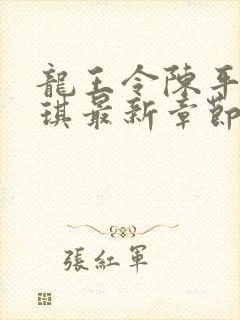 龍王令陳平
琪最新章節
張紅軍